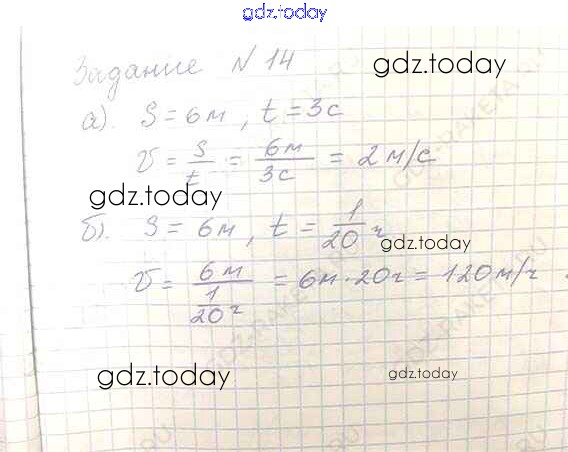 gdz.today
Задание №14
gdz.today
а). S = 6м, t = 3с
V = S/t = 6м/3с = 2м/с
gdz.today
б). S = 6м, t = 1/20 ч
gdz.today
V = 6м/(1/20 ч) = 6м · 20ч = 120м/ч
gdz.today
gdz.today